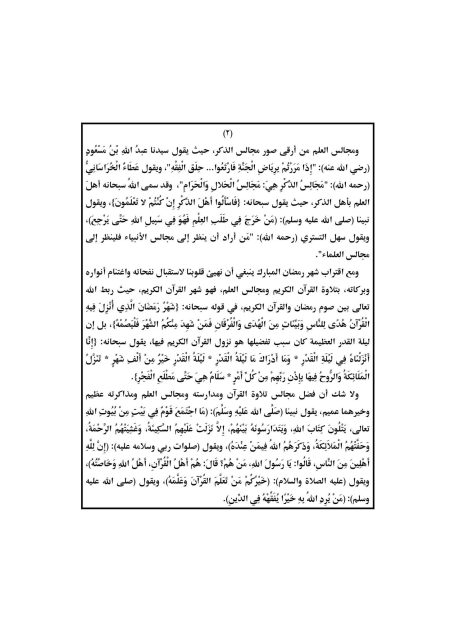 (٢)
ومجالس العلم من أرقى صور مجالس الذكر، حيث يقول سيدنا عبدُ اللهِ بْنُ مَسْعُودٍ
(رضي الله عنه): "إِذَا مَرَرْتُمْ بِرِيَاضِ الْجَنَّةِ فَارْتَعُوا... حِلَقَ الْفِقْهِ"، ويقول عَطَاءُ الْخُرَاسَانِيُّ
(رحمه الله): "مَجَالِسُ الذِّكْرِ هِيَ: مَجَالِسُ الْحَلَالِ وَالْحَرَامِ"، وقد سمى اللهُ سبحانه أهلَ
العلم بأهل الذكر، حيث يقول سبحانه: {فَاسْأَلُوا أَهْلَ الذِّكْرِ إِنْ كُنْتُمْ لَا تَعْلَمُونَ}، ويقول
نبينا (صلى الله عليه وسلم): (مَنْ خَرَجَ فِي طَلَبِ الْعِلْمِ فَهُوَ فِي سَبِيلِ اللهِ حَتَّى يَرْجِعَ)،
ويقول سهل التستري (رحمه الله): "مَن أراد أن ينظر إلى مجالس الأنبياء فلينظر إلى
مجالس العلماء".
ومع اقتراب شهر رمضان المبارك ينبغي أن نهيئ قلوبنا لاستقبال نفحاته واغتنام أنواره
وبركاته، بتلاوة القرآن الكريم ومجالس العلم، فهو شهر القرآن الكريم، حيث ربط الله
تعالى بين صوم رمضان والقرآن الكريم، في قوله سبحانه: {شَهْرُ رَمَضَانَ الَّذِي أُنْزِلَ فِيهِ
الْقُرْآنُ هُدًى لِلنَّاسِ وَبَيِّنَاتٍ مِنَ الْهُدَى وَالْفُرْقَانِ فَمَنْ شَهِدَ مِنْكُمُ الشَّهْرَ فَلْيَصُمْهُ}، بل إن
ليلة القدر العظيمة كان سبب تفضيلها هو نزول القرآن الكريم فيها، يقول سبحانه: {إِنَّا
أَنْزَلْنَاهُ فِي لَيْلَةِ الْقَدْرِ * وَمَا أَدْرَاكَ مَا لَيْلَةُ الْقَدْرِ * لَيْلَةُ الْقَدْرِ خَيْرٌ مِنْ أَلْفِ شَهْرٍ * تَنَزَّلُ
الْمَلَائِكَةُ وَالرُّوحُ فِيهَا بِإِذْنِ رَبِّهِمْ مِنْ كُلِّ أَمْرٍ * سَلَامٌ هِيَ حَتَّى مَطْلَعِ الْفَجْرِ}.
ولا شك أن فضل مجالس تلاوة القرآن ومدارسته ومجالس العلم ومذاكرته عظيم
وخيرهما عميم، يقول نبينا (صَلَّى الله عَلَيْهِ وَسَلَّمَ): (مَا اجْتَمَعَ قَوْمٌ فِي بَيْتٍ مِنْ بُيُوتِ اللهِ
تعالى، يَتْلُونَ كِتَابَ اللهِ، وَيَتَدَارَسُونَهُ بَيْنَهُمْ، إِلَّا نَزَلَتْ عَلَيْهِمُ السَّكِينَةُ، وَغَشِيَتْهُمُ الرَّحْمَةُ،
وَحَفَّتْهُمُ الْمَلَائِكَةُ، وَذَكَرَهُمُ اللهُ فِيمَنْ عِنْدَهُ)، ويقول (صلوات ربي وسلامه عليه): (إِنَّ لِلَّهِ
أَهْلِينَ مِنَ النَّاسِ، قَالُوا: يَا رَسُولَ اللهِ، مَنْ هُمْ؟ قَالَ: هُمْ أَهْلُ الْقُرْآنِ، أَهْلُ اللهِ وَخَاصَّتُهُ)،
ويقول (عليه الصلاة والسلام): (خَيْرُكُمْ مَنْ تَعَلَّمَ الْقُرْآنَ وَعَلَّمَهُ)، ويقول (صلى الله عليه
وسلم): (مَنْ يُرِدِ اللهُ بِهِ خَيْرًا يُفَقِّهْهُ فِي الدِّينِ).